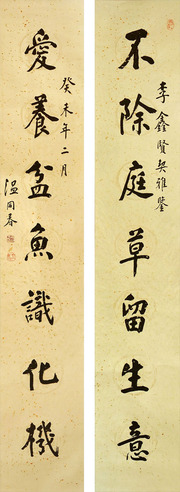 不除庭草留生意
李鑫賢契雅鑒
癸未年二月
愛養盆魚識化機
温同春